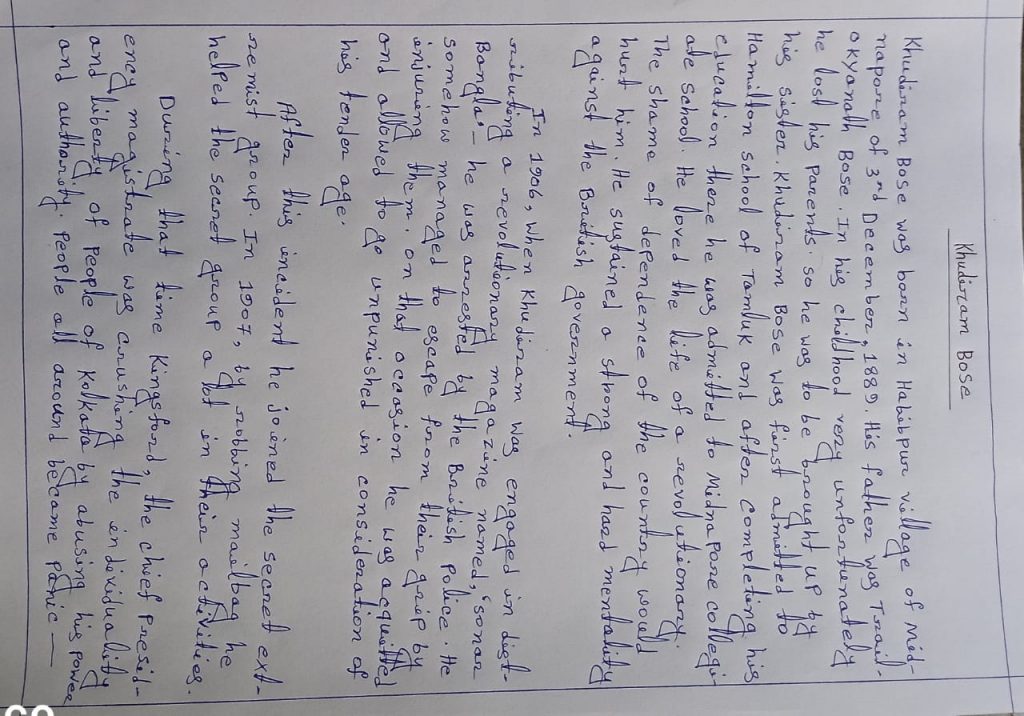 Khudiram Bose
Khudiram Bose was born in Habibpur village of Mid-
napore of 3rd December, 1889. His father was Trail-
okyanath Bose. In his childhood very unfortunately
he lost his Parents. so he was to be brought up by
his sister. Khudiram Bose was first admitted to
Hamilton School of Tamluk and after completing his
education there he was admitted to Midnapore collegi-
ate school. He loved the life of a revolutionary.
The shame of dependence of the country would
hurt him. He sustained a strong and hard mentality
against the British government.
In 1906, when Khudiram was engaged in dist-
ributing a revolutionary magazine named, 'Sonar
Bangla' - he was arrested by the British Police. He
somehow managed to escape from their grip by
injuring them. on that occasion he was acquitted
and allowed to go unpunished in consideration of
his tender age.
After this incident he joined the secret ext-
remist group. In 1907, by robing mailbag he
helped the secret group a lot in their activities.
During that time Kingsford, the chief Presid-
ency magistrate was crushing the individuality
and liberty of people of Kolkata by abusing his power
and authority. People all around became panic —